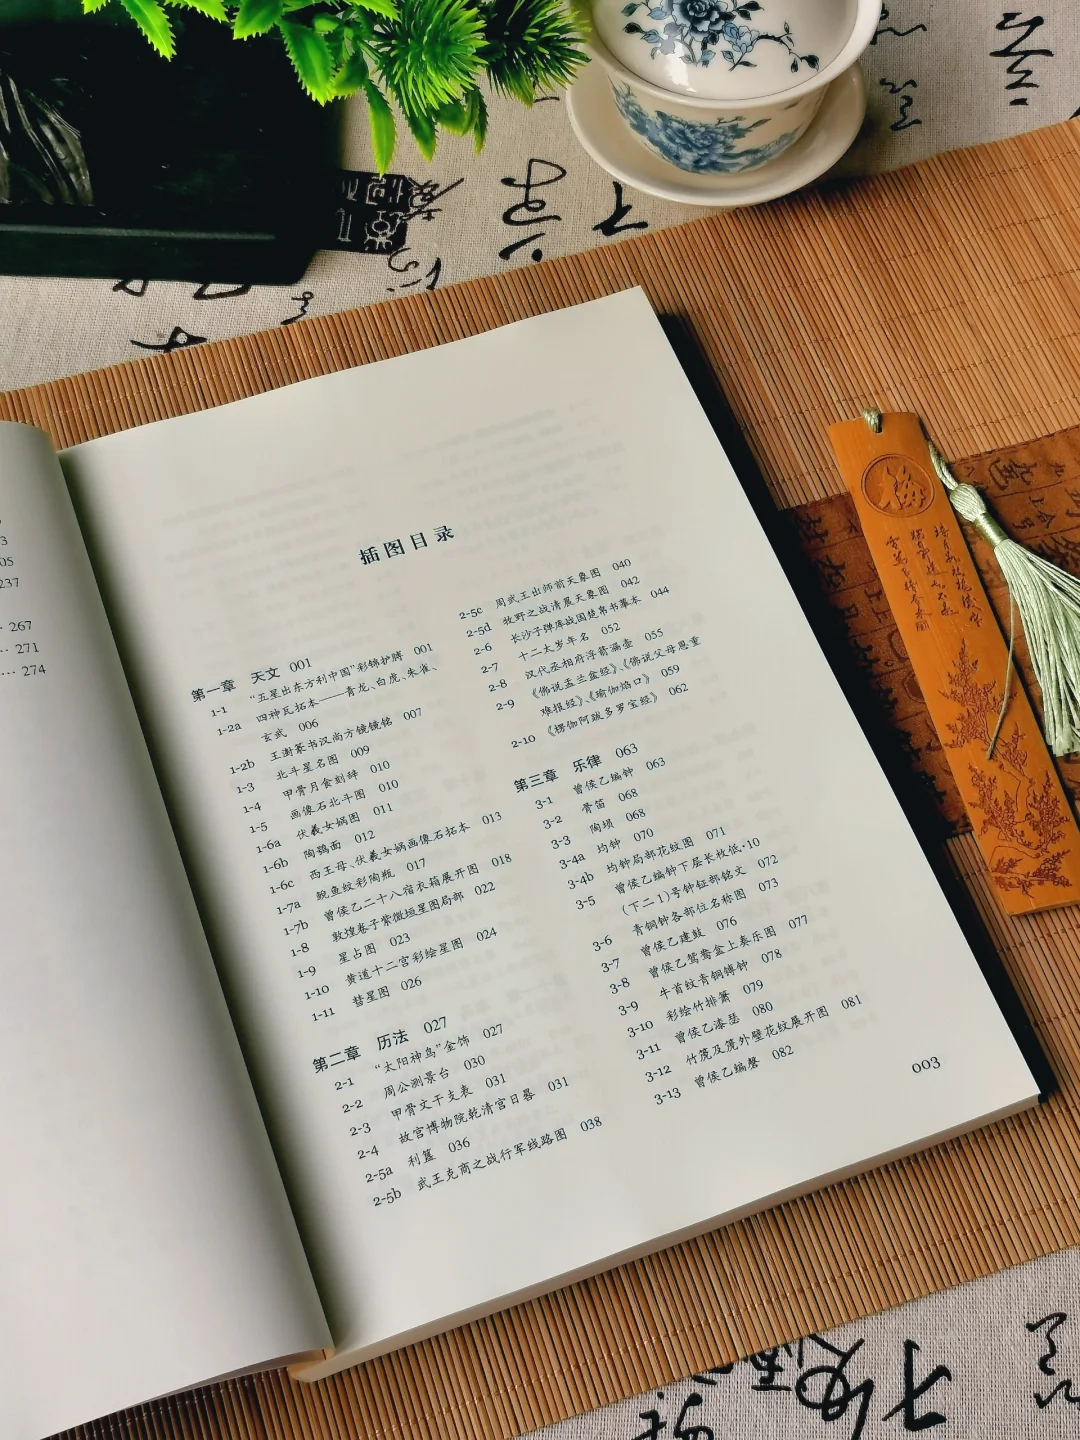 3
05
237
267
271
274
插图目录
第一章 天文 001
1-1 “五星出东方利中国”彩锦护膊 001
1-2a 四神瓦拓本——青龙、白虎、朱雀、
玄武 006
1-2b 王澍篆书汉尚方镜镜铭 007
1-3 北斗星名图 009
1-4 甲骨月食刻辞 010
1-5 画像石北斗图 010
1-6a 伏羲女娲图 011
1-6b 陶鸮面 012
1-6c 西王母、伏羲女娲画像石拓本 013
1-7a 鲵鱼纹彩陶瓶 017
1-7b 曾侯乙二十八宿衣箱展开图 018
1-8 敦煌卷子紫微垣星图局部 022
1-9 星占图 023
1-10 黄道十二宫彩绘星图 024
1-11 彗星图 026
第二章 历法 027
2-1 “太阳神鸟”金饰 027
2-2 周公测景台 030
2-3 甲骨文干支表 031
2-4 故宫博物院乾清宫日晷 031
2-5a 利簋 036
2-5b 武王克商之战行军线路图 038
2-5c 周武王出师前天象图 040
2-5d 牧野之战清晨天象图 042
2-6 长沙子弹库战国楚帛书摹本 044
2-7 十二太岁年名 052
2-8 汉代丞相府浮箭漏壶 055
2-9 《佛说盂兰盆经》、《佛说父母恩重
难报经》、《瑜伽焰口》 059
2-10 《楞伽阿跋多罗宝经》 062
第三章 乐律 063
3-1 曾侯乙编钟 063
3-2 骨笛 068
3-3 陶埙 068
3-4a 均钟 070
3-4b 均钟局部花纹图 071
3-5 曾侯乙编钟下层长枚低·10
(下二1)号钟钲部铭文 072
3-6 青铜钟各部位名称图 073
3-7 曾侯乙建鼓 076
3-8 曾侯乙鸳鸯盒上奏乐图 077
3-9 牛首纹青铜镈钟 078
3-10 彩绘竹排箫 079
3-11 曾侯乙漆瑟 080
3-12 竹篪及篪外壁花纹展开图 081
3-13 曾侯乙编磬 082
003
梅